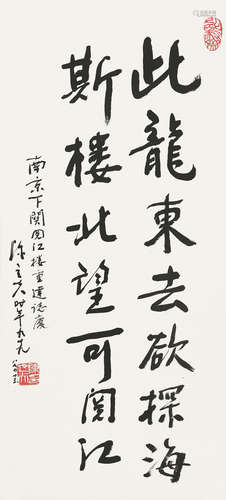 此龍東去欲探海
斯楼北望可阅江
南京下関阅江楼重建誌慶
陈立夫时年九九